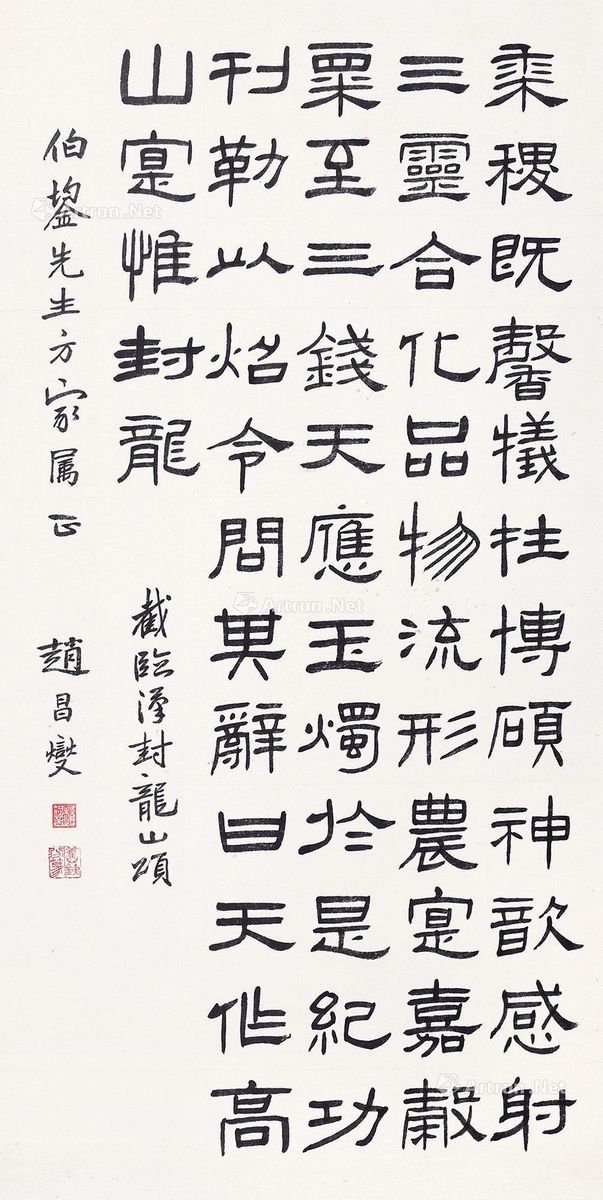 黍稷既馨犧牲博碩神歆感射
三靈合化品物流形農寔嘉穀
粟至三錢天應玉燭扵是紀功
刊勒以炤令問其辭曰天作高
山寔惟封龍
截臨漢封龍山頌
伯鋆先生方家属正 趙昌燮
Artron.Net
Artron.Net
Artron.Net
Artron.Net